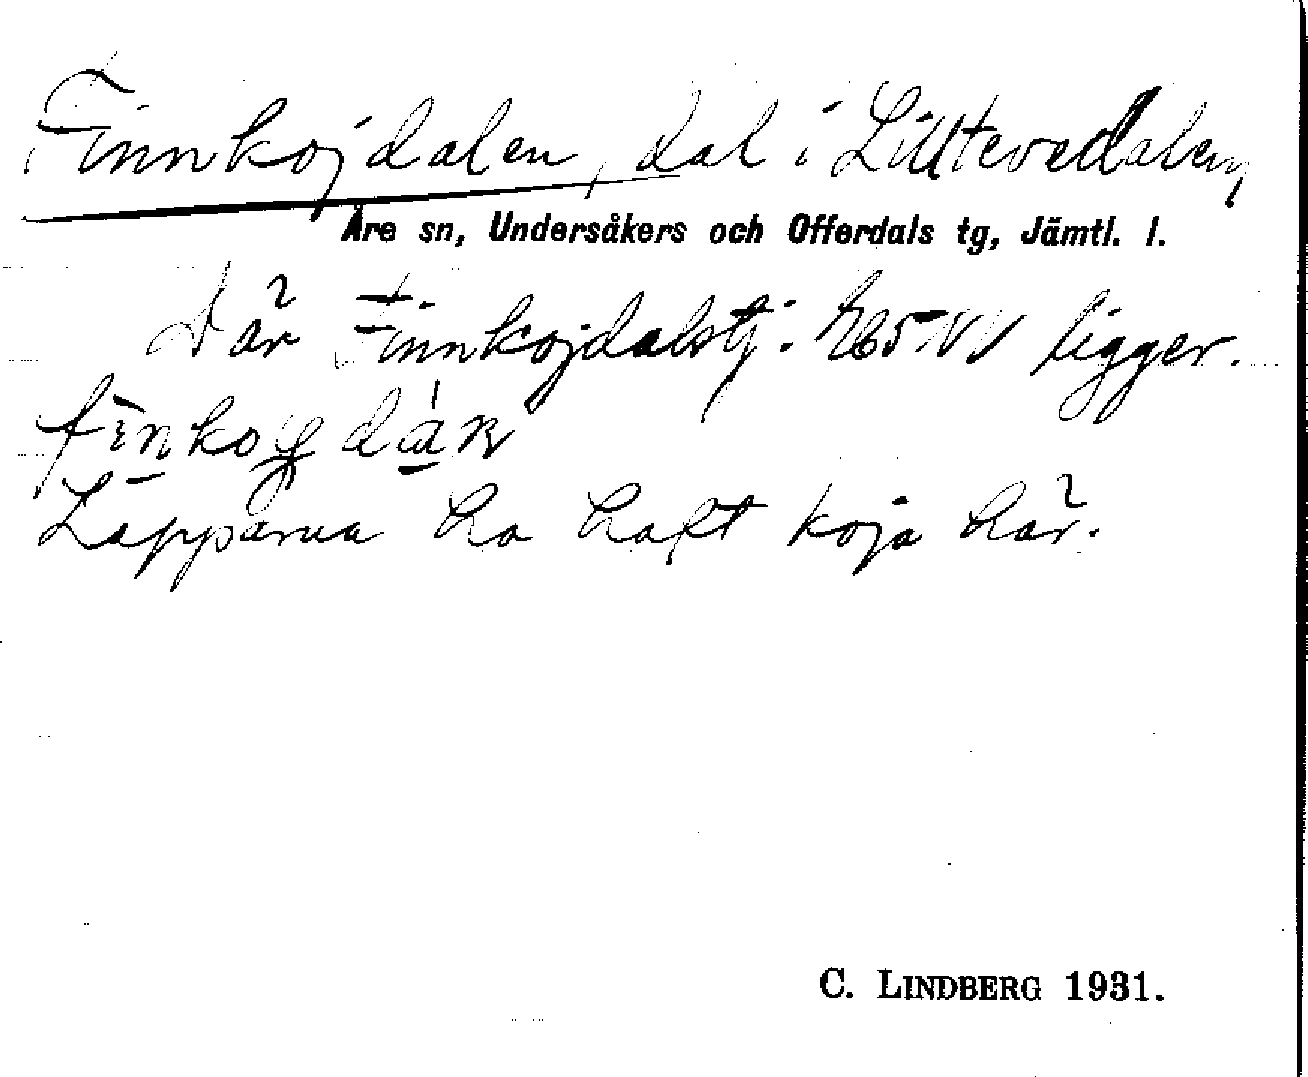 Finnkojdalen, dal i Lilltevedalen,
Åre sn, Undersåkers och Offerdals tg, Jämtl. l.
där Finnkojdalstj. ligger.
Lapparna ha haft koja här.
C. LINDBERG 1931.